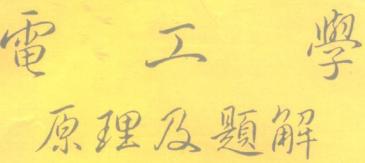 電工學
原理及題解